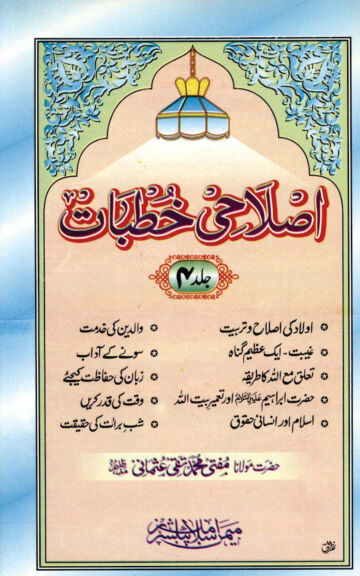 اصلاحی خطبات
جلد ۴
اولاد کی اصلاح و تربیت
غیبت - ایک عظیم گناہ
تعلق مع اللہ کا طریقہ
حضرت ابراہیم علیہ السلام اور تعمیر بیت اللہ
اسلام اور انسانی حقوق
والدین کی خدمت
سونے کے آداب
زبان کی حفاظت کیجئے
وقت کی قدر کریں
شب برات کی حقیقت
حضرت مولانا مفتی محمد تقی عثمانی
میمن اسلامک پبلشرز